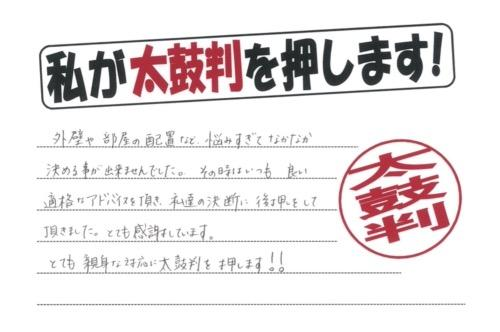 私が太鼓判を押します!
外壁や部屋の配置など、悩みすぎてなかなか
決める事が出来ませんでした。その時はいつも良い
適格なアドバイスを頂き、私達の決断に後押しをして
頂きました。とても感謝しています。
とても親身な対応に太鼓判を押します!!
太鼓判